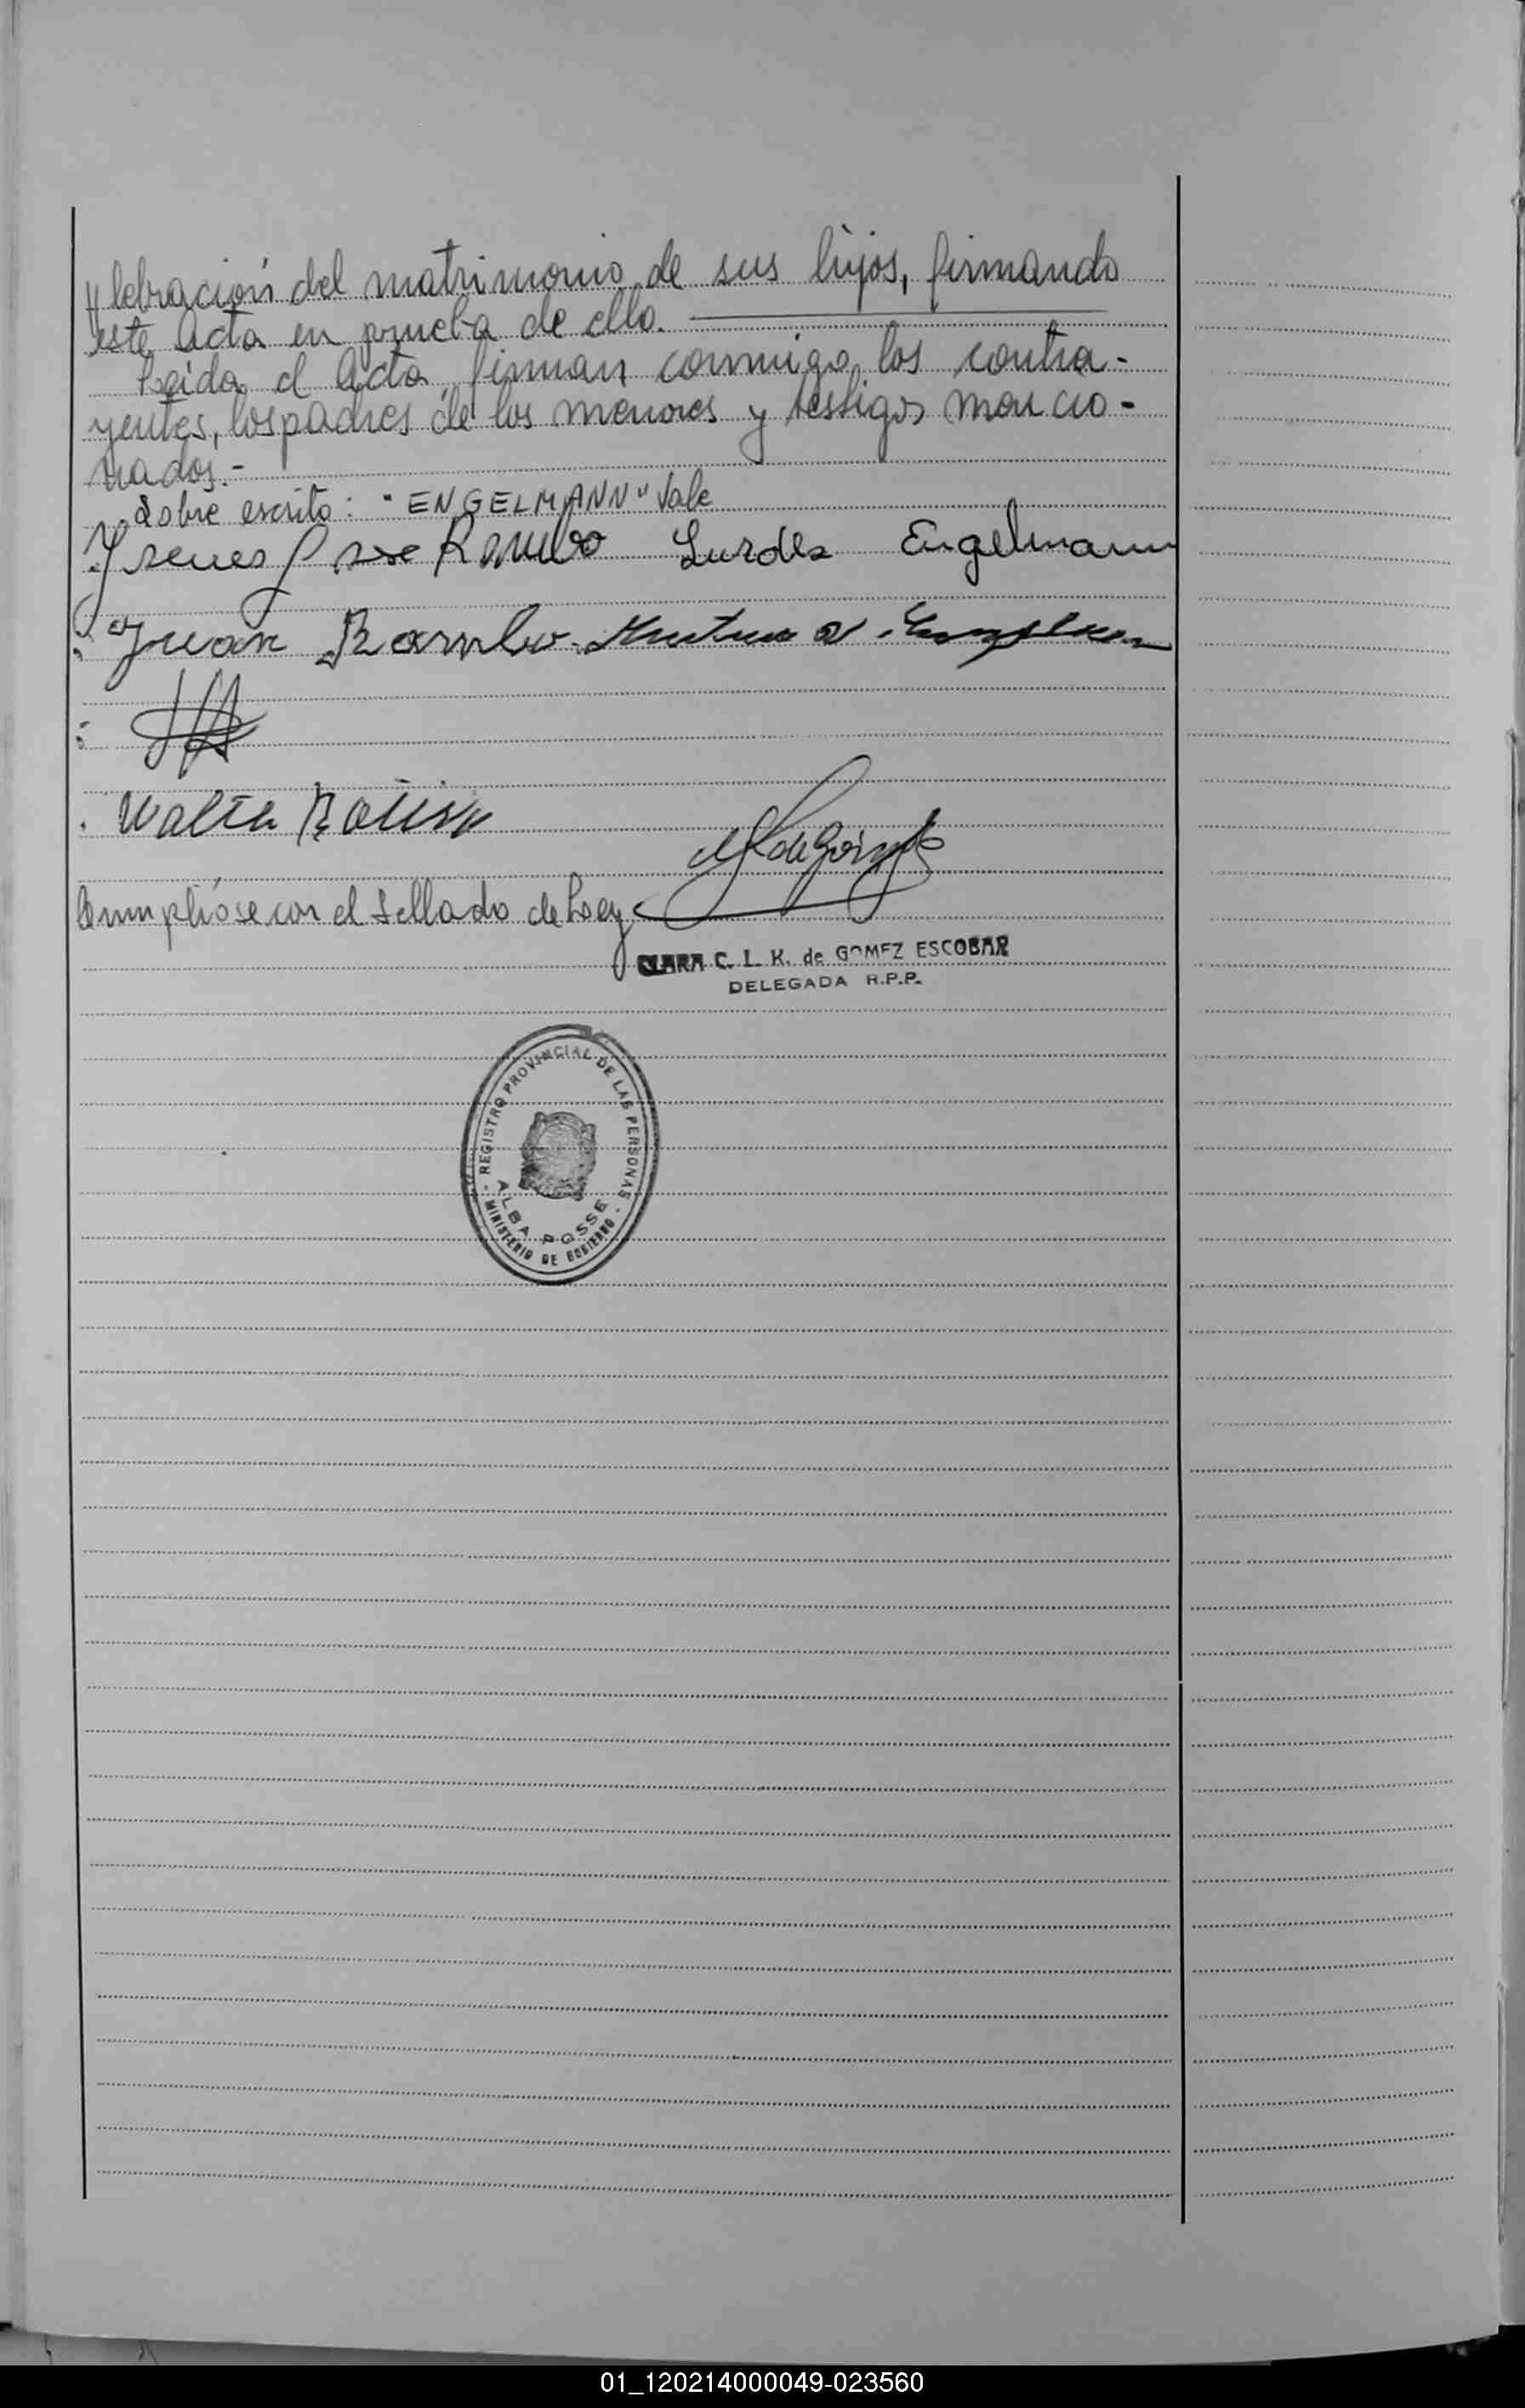 //lebración del matrimonio de sus hijos, firmando
este Acta en prueba de ello.
Leida el Acta, firman conmigo los contra-
yentes, los padres de los menores y testigos mencio-
nados.-
Sobre escrito: "ENGELMANN" Vale
Rambo Lurdes Engelmann
Juan Rambo
Walter
Cumplióse con el sellado de Ley
CLARA C. L. K. de GOMEZ ESCOBAR
DELEGADA R.P.P.
REGISTRO PROVINCIAL DE LAS PERSONAS
ALBA POSSE
MINISTERIO DE GOBIERNO
01_120214000049-023560